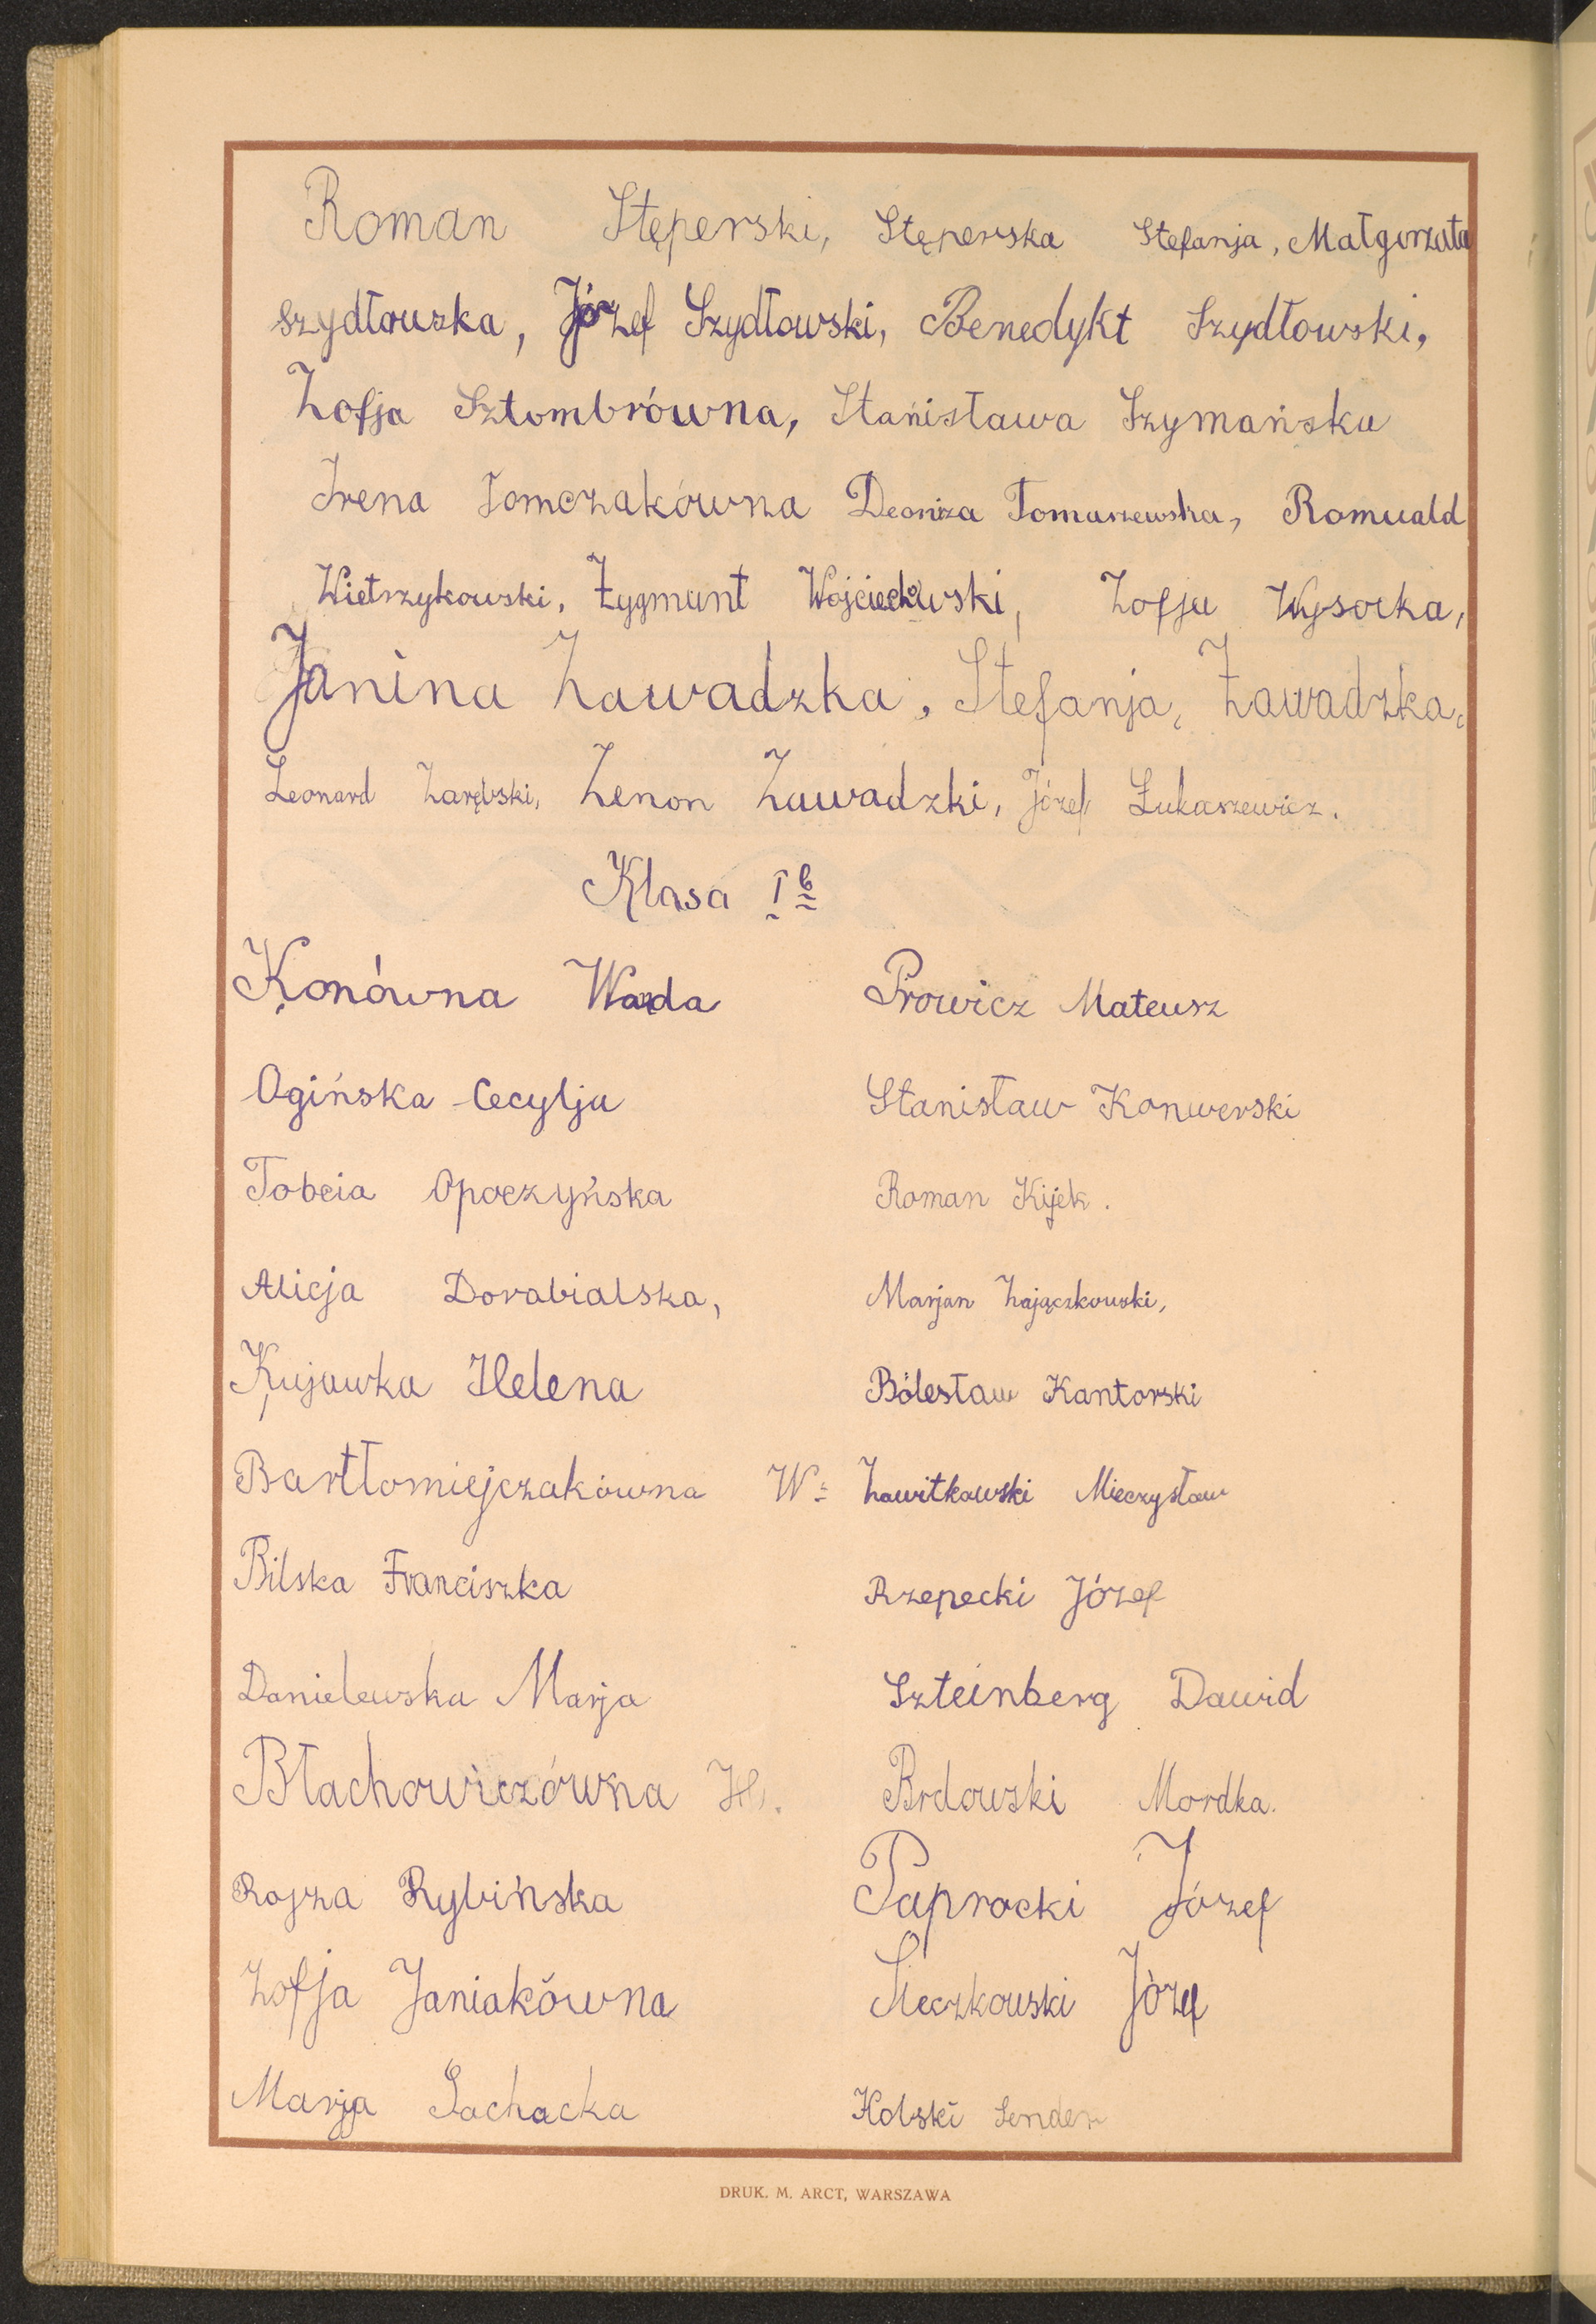 Roman Stęperski, Stęperska Stefanja, Małgorzata
Szydłowska, Józef Szydłowski, Benedykt Szydłowski,
Zofja Sztombrówna, Stanisława Szymańska
Irena Tomczakówna Deoniza Tomaszewska, Romuald
Wietrzykowski, Zygmunt Wojciechowski, Zofja Wysocka,
Janina Zawadzka, Stefanja, Zawadzka,
Leonard Zarębski, Zenon Zawadzki, Józef Łukaszewicz.
Klasa I b
Konówna Wanda
Ogińska Cecylja
Tobcia Opoczyńska
Alicja Dorabialska,
Kujawka Helena
Bartłomiejczakówna W.
Bilska Franciszka
Danielewska Marja
Błachowiczówna H.
Rojza Rybińska
Zofja Janiakówna
Marja Sachacka
Prowicz Mateusz
Stanisław Konwerski
Roman Kijek.
Marjan Zajączkowski,
Bolesław Kantorski
Zawitkowski Mieczysław
Rzepecki Józef
Szteinberg Dawid
Brdowski Mordka.
Paprocki Józef
Sieczkowski Józef
Holski Sender
DRUK. M. ARCT, WARSZAWA